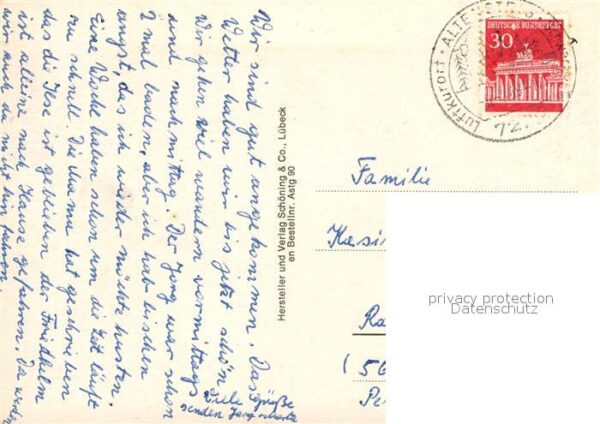 Wir sind gut angekommen. Das
Wetter haben wir bis jetzt schön
Wir gehen viel wandern vormittags
und nachmittag. Der Jörg war schon
2 mal baden, aber ich hab bischen
angst, das ich wieder möchte husten.
Eine Woche haben schon um die Zeit läuft
zu schnell. Die Mama hat geschrieben
das die Ilse ist geblieben der Friedhelm
ist alleine nach Hause gefahren. Da werden
wir auch da nicht hin fahren.
Viele Grüße
senden Jörg
Hersteller und Verlag Schöning & Co., Lübeck
en Bestellnr. Astg 90
Luftkurort · ALTENST
DEUTSCHE BUNDESPOST
30
Familie
Kasi
Ra
(56
Pe
privacy protection
Datenschutz